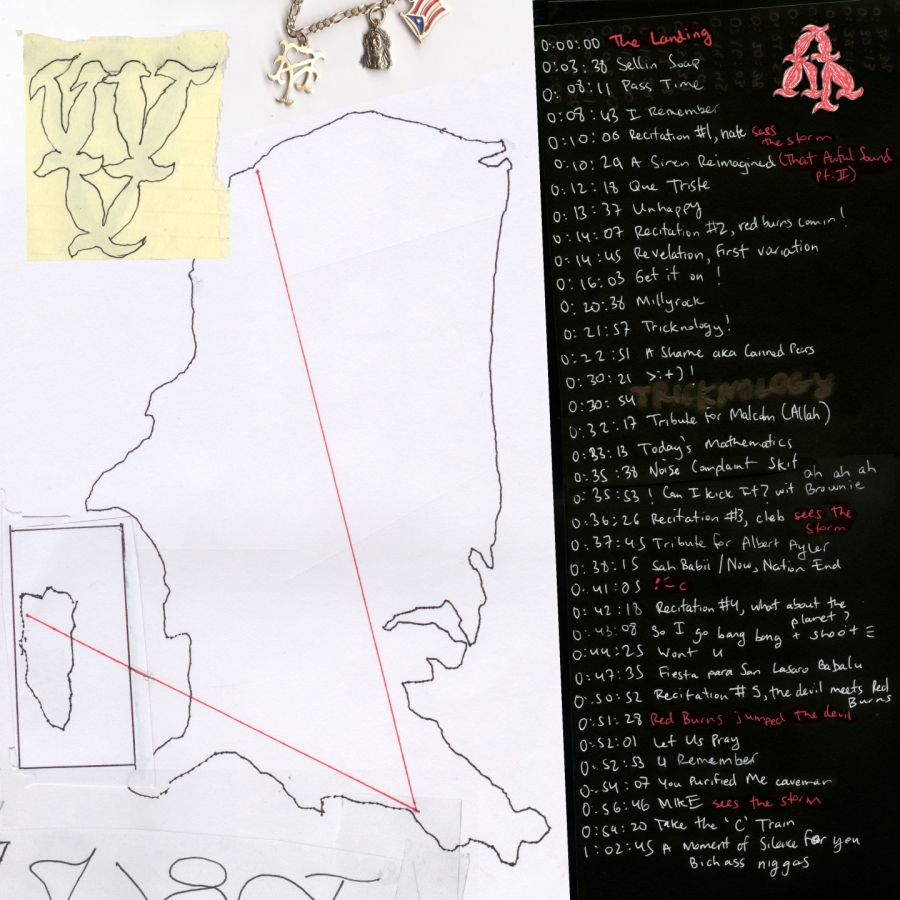 0:00:00 The Landing
0:03:38 Sellin Soap
0:08:11 Pass Time
0:08:43 I Remember
0:10:00 Recitation #1, nate sees
the storm
0:10:29 A Siren Reimagined (That Awful Sound
pt. II)
0:12:18 Que Triste
0:13:37 Unhappy
0:14:07 Recitation #2, red burns comin!
0:14:45 Revelation, First variation
0:16:03 Get it on!
0:20:38 Millyrock
0:21:57 Tricknology!
0:22:51 A Shame aka Canned Pears
0:30:21 >:+)!
0:30:54 TRICKNOLOGY
0:32:17 Tribute for Malcolm (Allah)
0:33:13 Today's Mathematics
0:35:38 Noise Complaint Skit
0:35:53 ! Can I kick It? wit Brownie
ah ah ah
0:36:26 Recitation #3, cleb sees the
storm
0:37:45 Tribute for Albert Ayler
0:38:15 Sah Babii / Now, Nation End
0:41:05
0:42:18 Recitation #4, what about the
planet?
0:43:08 So I go bang bang + shoot
0:44:25 Wont U
0:47:35 Fiesta para San Lasaro Babalu
0:50:52 Recitation #5, the devil meets Red
Burns
0:51:28 Red Burns jumped the devil
0:52:01 Let Us Pray
0:52:53 U Remember
0:54:07 You Purified Me caveman
0:56:46 MIKE sees the storm
0:59:20 Take the 'C' Train
1:02:45 A Moment of Silence for you
Bichass niggas